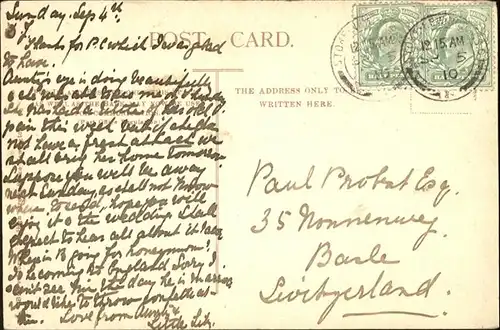 Sunday, Sep 4th.
Thanks for P.C. which I was glad
to have.
Auntie's eye is doing beautifully
& she was able to see me on
She has had
pain this week but if she does
not have a fresh attack we
shall bring her home tomorrow
Suppose you will be away
next Sunday, so shall not know
where to send, hope you will
enjoy it & the wedding. I shall
expect to hear all about it.
Where is B. going for honeymoon?
Is he coming to England. Sorry I
can't see him the day he is married
would like to throw confetti at
him. Love from Auntie &
Little Lily.
POST CARD.
THE ADDRESS ONLY TO BE
WRITTEN HERE.
12.15 AM
5
10
12.15 AM
5
10
Paul Probst Esq.
35 Nonnenweg
Basle
Switzerland.